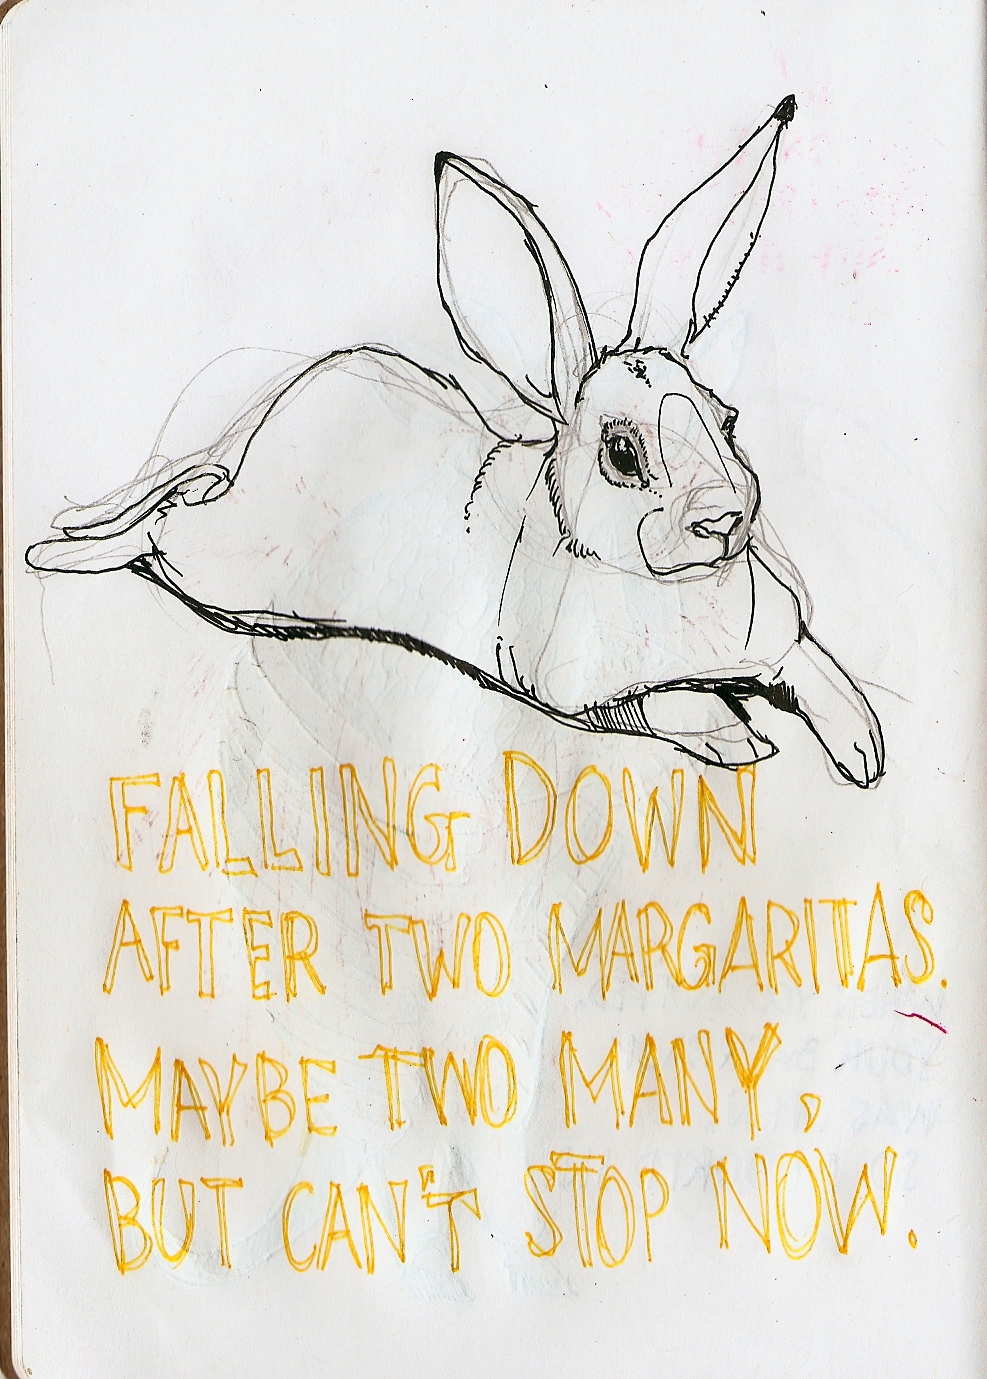 FALLING DOWN
AFTER TWO MARGARITAS.
MAYBE TWO MANY,
BUT CAN'T STOP NOW.